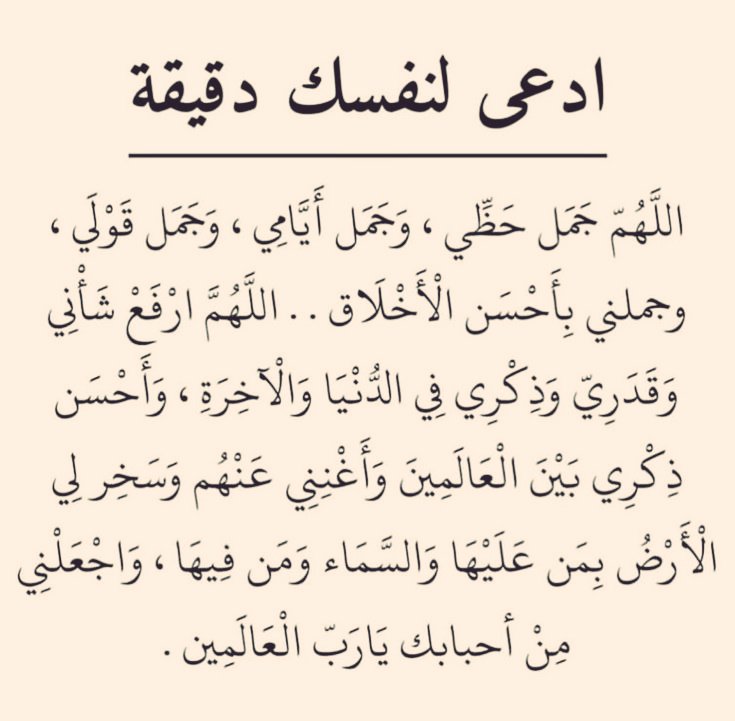 ادعى لنفسك دقيقة
اللَّهُمّ جَمَل حَظِّي ، وَجَمَل أَيَّامِي ، وَجَمَل قَوْلَي ،
وجملني بِأَحْسَن الْأَخْلَاق . . اللَّهُمَّ ارْفَعْ شَأْنِي
وَقَدَرِيّ وَذِكْرِي فِي الدُّنْيَا وَالْآخِرَةِ ، وَأَحْسَن
ذِكْرِي بَيْنَ الْعَالَمِينَ وَأَغْنِنِي عَنْهُم وَسَخِر لِي
الْأَرْضُ بِمَن عَلَيْهَا وَالسَّمَاء وَمَن فِيهَا ، وَاجْعَلْنِي
مِنْ أحبابك يَارَبّ الْعَالَمِين .